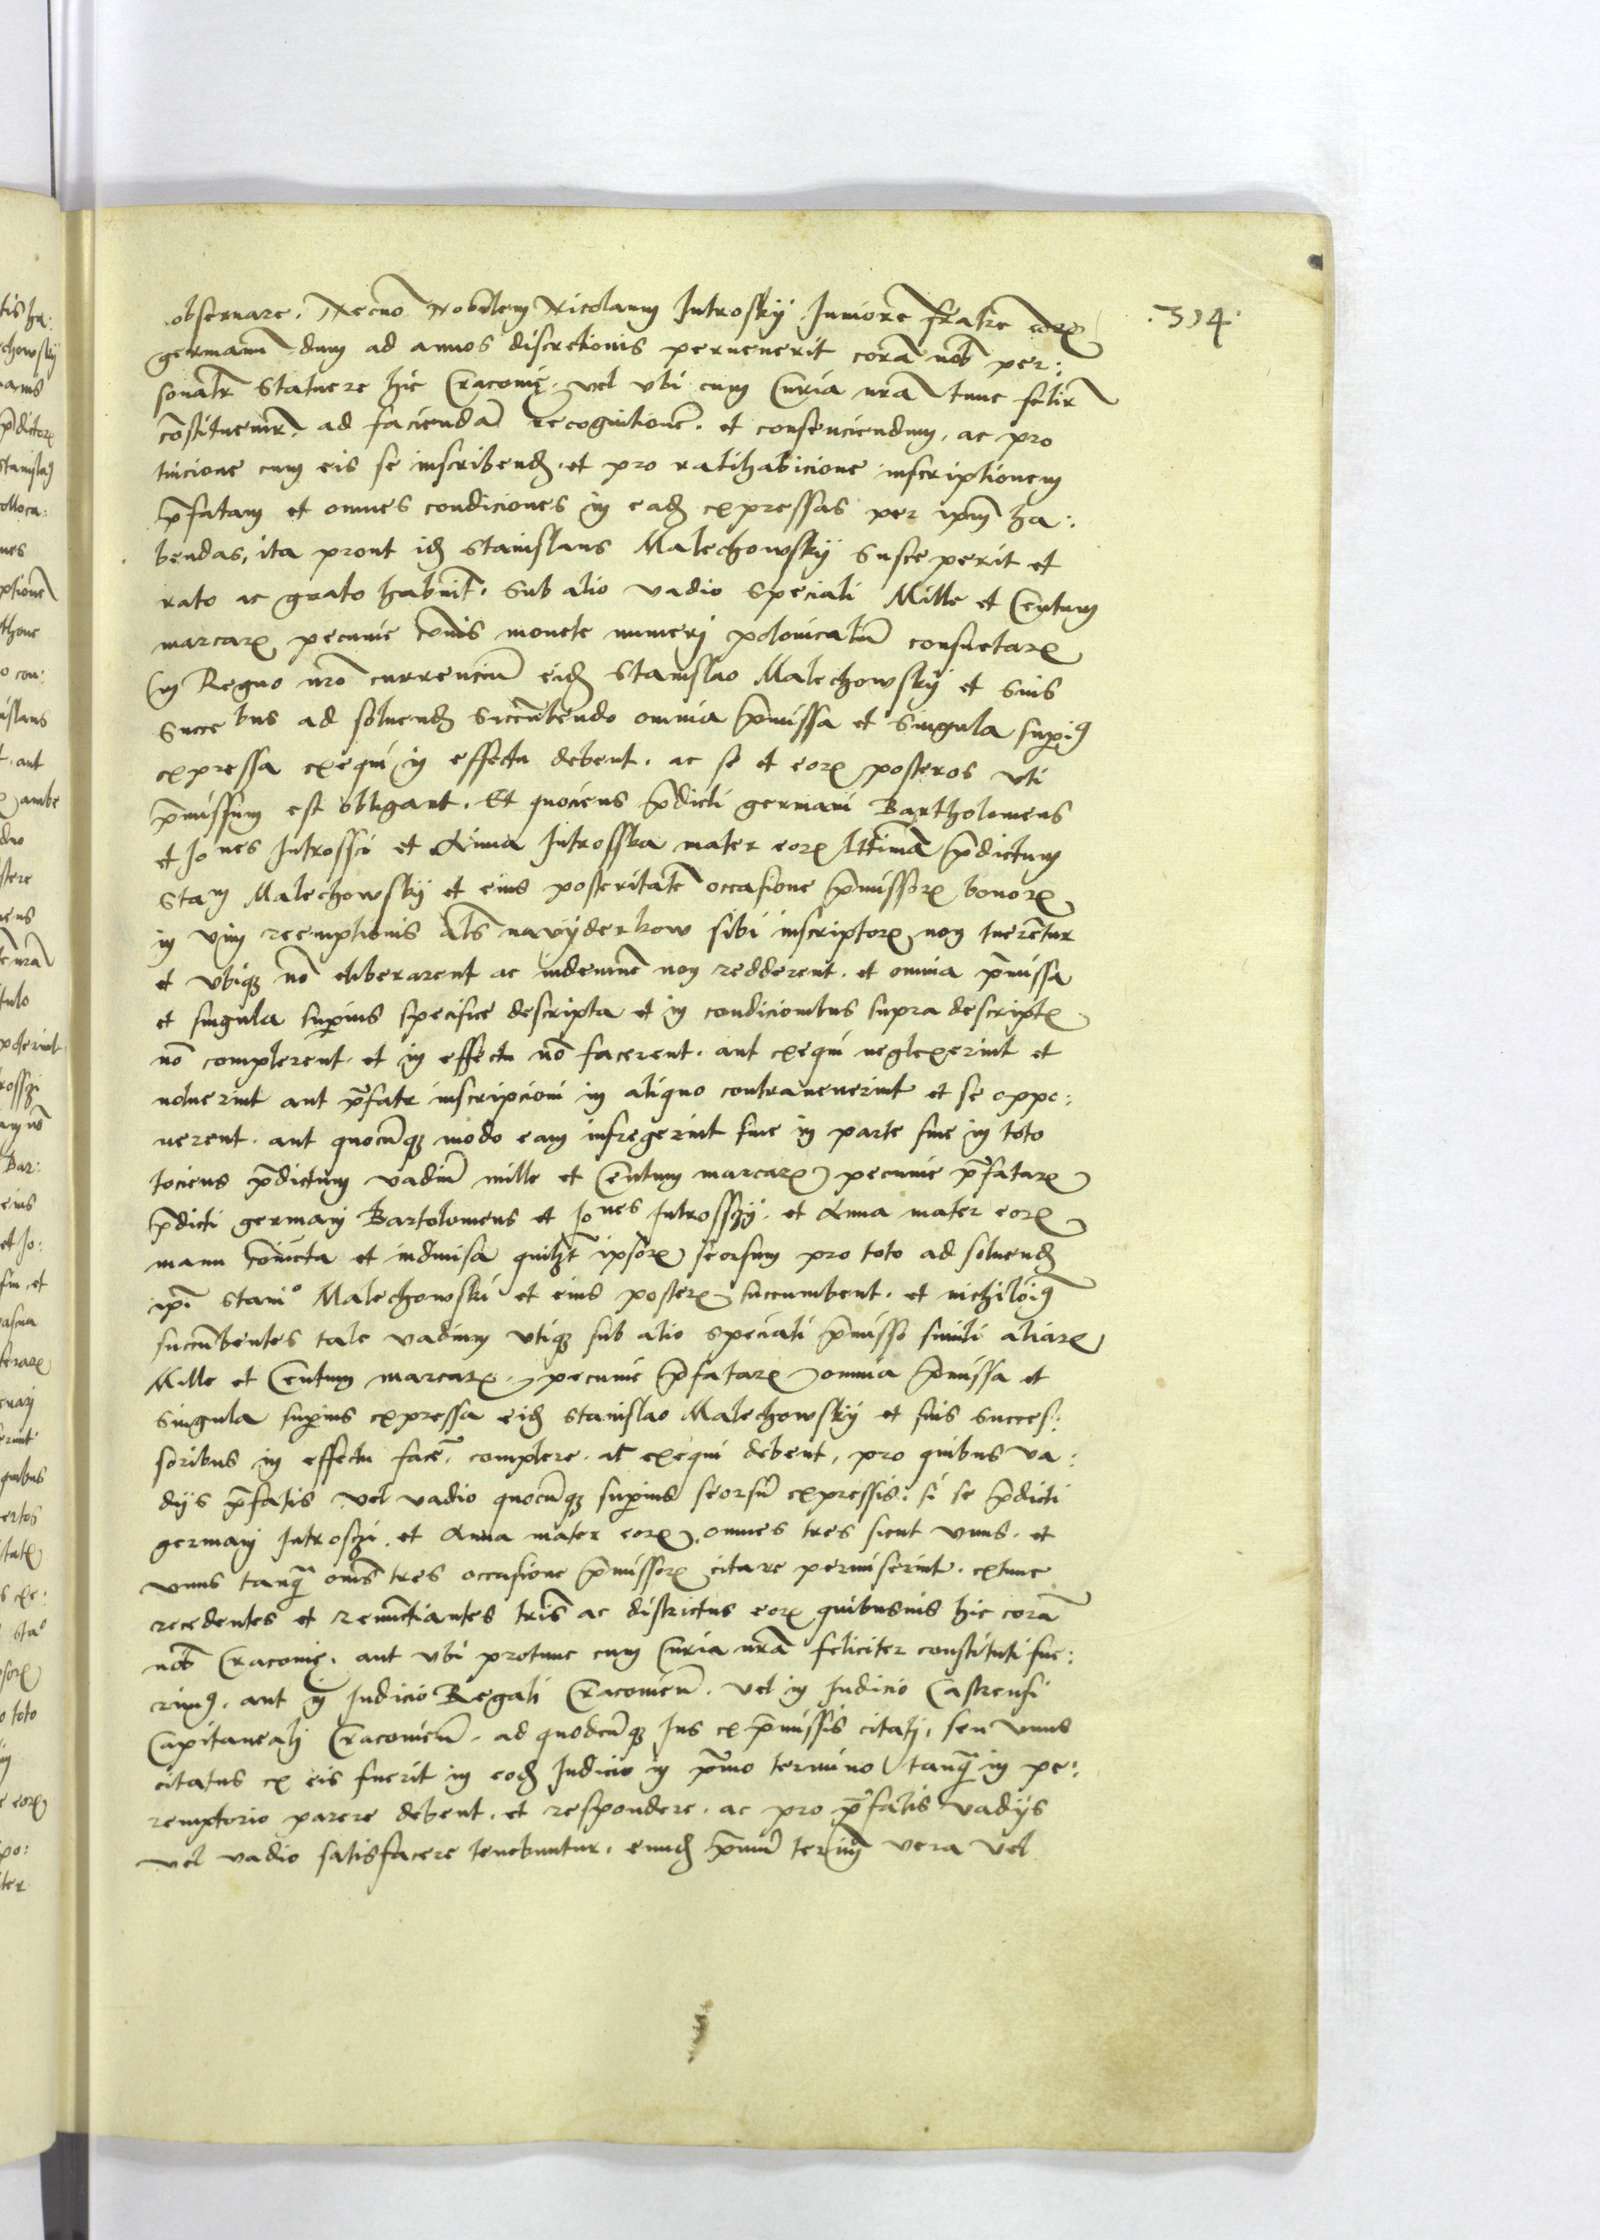 .314.
obseruare. Necnō Nobilem Nicolaum Jutrosky Juniorē fratrē eorꝫ
germanū dum ad annos discretionis peruenerit corā nob̄ per:
sonalr̄ statuere hic Cracouię vel vbi cum Curia nr̄a tunc felir̄
cōstituemr̄. ad faciendā recognitionē. et consenciendum. ac pro
tuicione cum eis se inscribend̄. et pro ratihabicione inscriptionem
p̄fatam et omnes condiciones in ead̄ expressas per ip̄m ha:
bendas, ita prout id̄ Stanislaus Malechowskÿ susceperit et
rato ac grato habuit. sub alio vadio speciali Mille et Centum
marcarꝫ pecunie cōis monete numerj polonicalīu consuetarꝫ
in Regno nr̄o currenciū eid̄ Stanislao Malechowskÿ et suis
succe bus ad soluend̄ succūbendo omnia p̄missa et singula suꝑiꝯ
expressa exequi in effectu debent. ac se et eorꝫ posteros vti
p̄missum est obligant. Et quociens p̄dicti germani Bartholomeus
et Joḥnes Jutrossci et Anna Jutrosska mater eorꝫ l̄ttimā p̄dictum
Stam Malechowskÿ et eius posteritatē occasione p̄missorꝫ bonorꝫ
in vim reemptionis al̄s na vyderkow sibi inscriptorꝫ non tuerētur
et vbiqꝫ nō eliberarent ac indemnē non redderent. et omnia p̄missa
et singula suꝑius specifice descripta et in condicionibus supra descriptꝫ
nō complerent. et in effectu nō facerent. aut exequi neglexerint et
noluerint aut p̄fate inscripcioni in aliquo contrauenerint et se oppo:
nerent. aut quocūqꝫ modo eam infregerint siue in parte siue in toto
tociens p̄dictum vadiū mille et Centum marcarꝫ pecunie p̄fatarꝫ
p̄dicti germanj Bartolomeus et Joḥnes Jutrosszÿ. et Anna mater eorꝫ
manu cōiūcta et indiuisa quilꝫt ipsorꝫ seorsum pro toto ad soluend̄
ip̄i Stanio Malechowski et eius posterꝫ succumbent. et nichiloīꝯ
succūbentes tale vadium vtiqꝫ sub alio speciali p̄misso simili aliarꝫ
Mille et Centum marcarꝫ pecunie p̄fatarꝫ omnia p̄missa et
singula suꝑius expressa eid̄ Stanislao Malechowskÿ et suis succes:
soribus in effectu facē. complere. ac exequi debent. pro quibus va:
dijs p̄fatis vel vadio quocūqꝫ suꝑius seorsū expressis. si se p̄dicti
germanj Jutroszi. et Anna mater eorꝫ omnes tres sicut vnus. et
vnus tanq̄ om̄s tres occasione p̄missorꝫ citare permiserint. extunc
recedentes et renūctiantes tr̄is ac districtus eorꝫ quibusuis hic corā
nob̄ Cracouię. aut vbi protunc cum Curia nr̄a feliciter constituti fue:
rimꝯ. aut in Judicio Regali Cracouieñ. vel in Judicio Castrensi
Capitanealj Cracouieñ. ad quodcūqꝫ Jus ex p̄missis citatj, seu vnus
citatus ex eis fuerit in eod̄ Judicio in p̄mo termino tanq̄ in pe:
remptorio parere debent. et respondere. ac pro p̄fatis vadijs
vel vadio satisfacere tenebuntur. eund̄ p̄mū ter̄mū vera vel